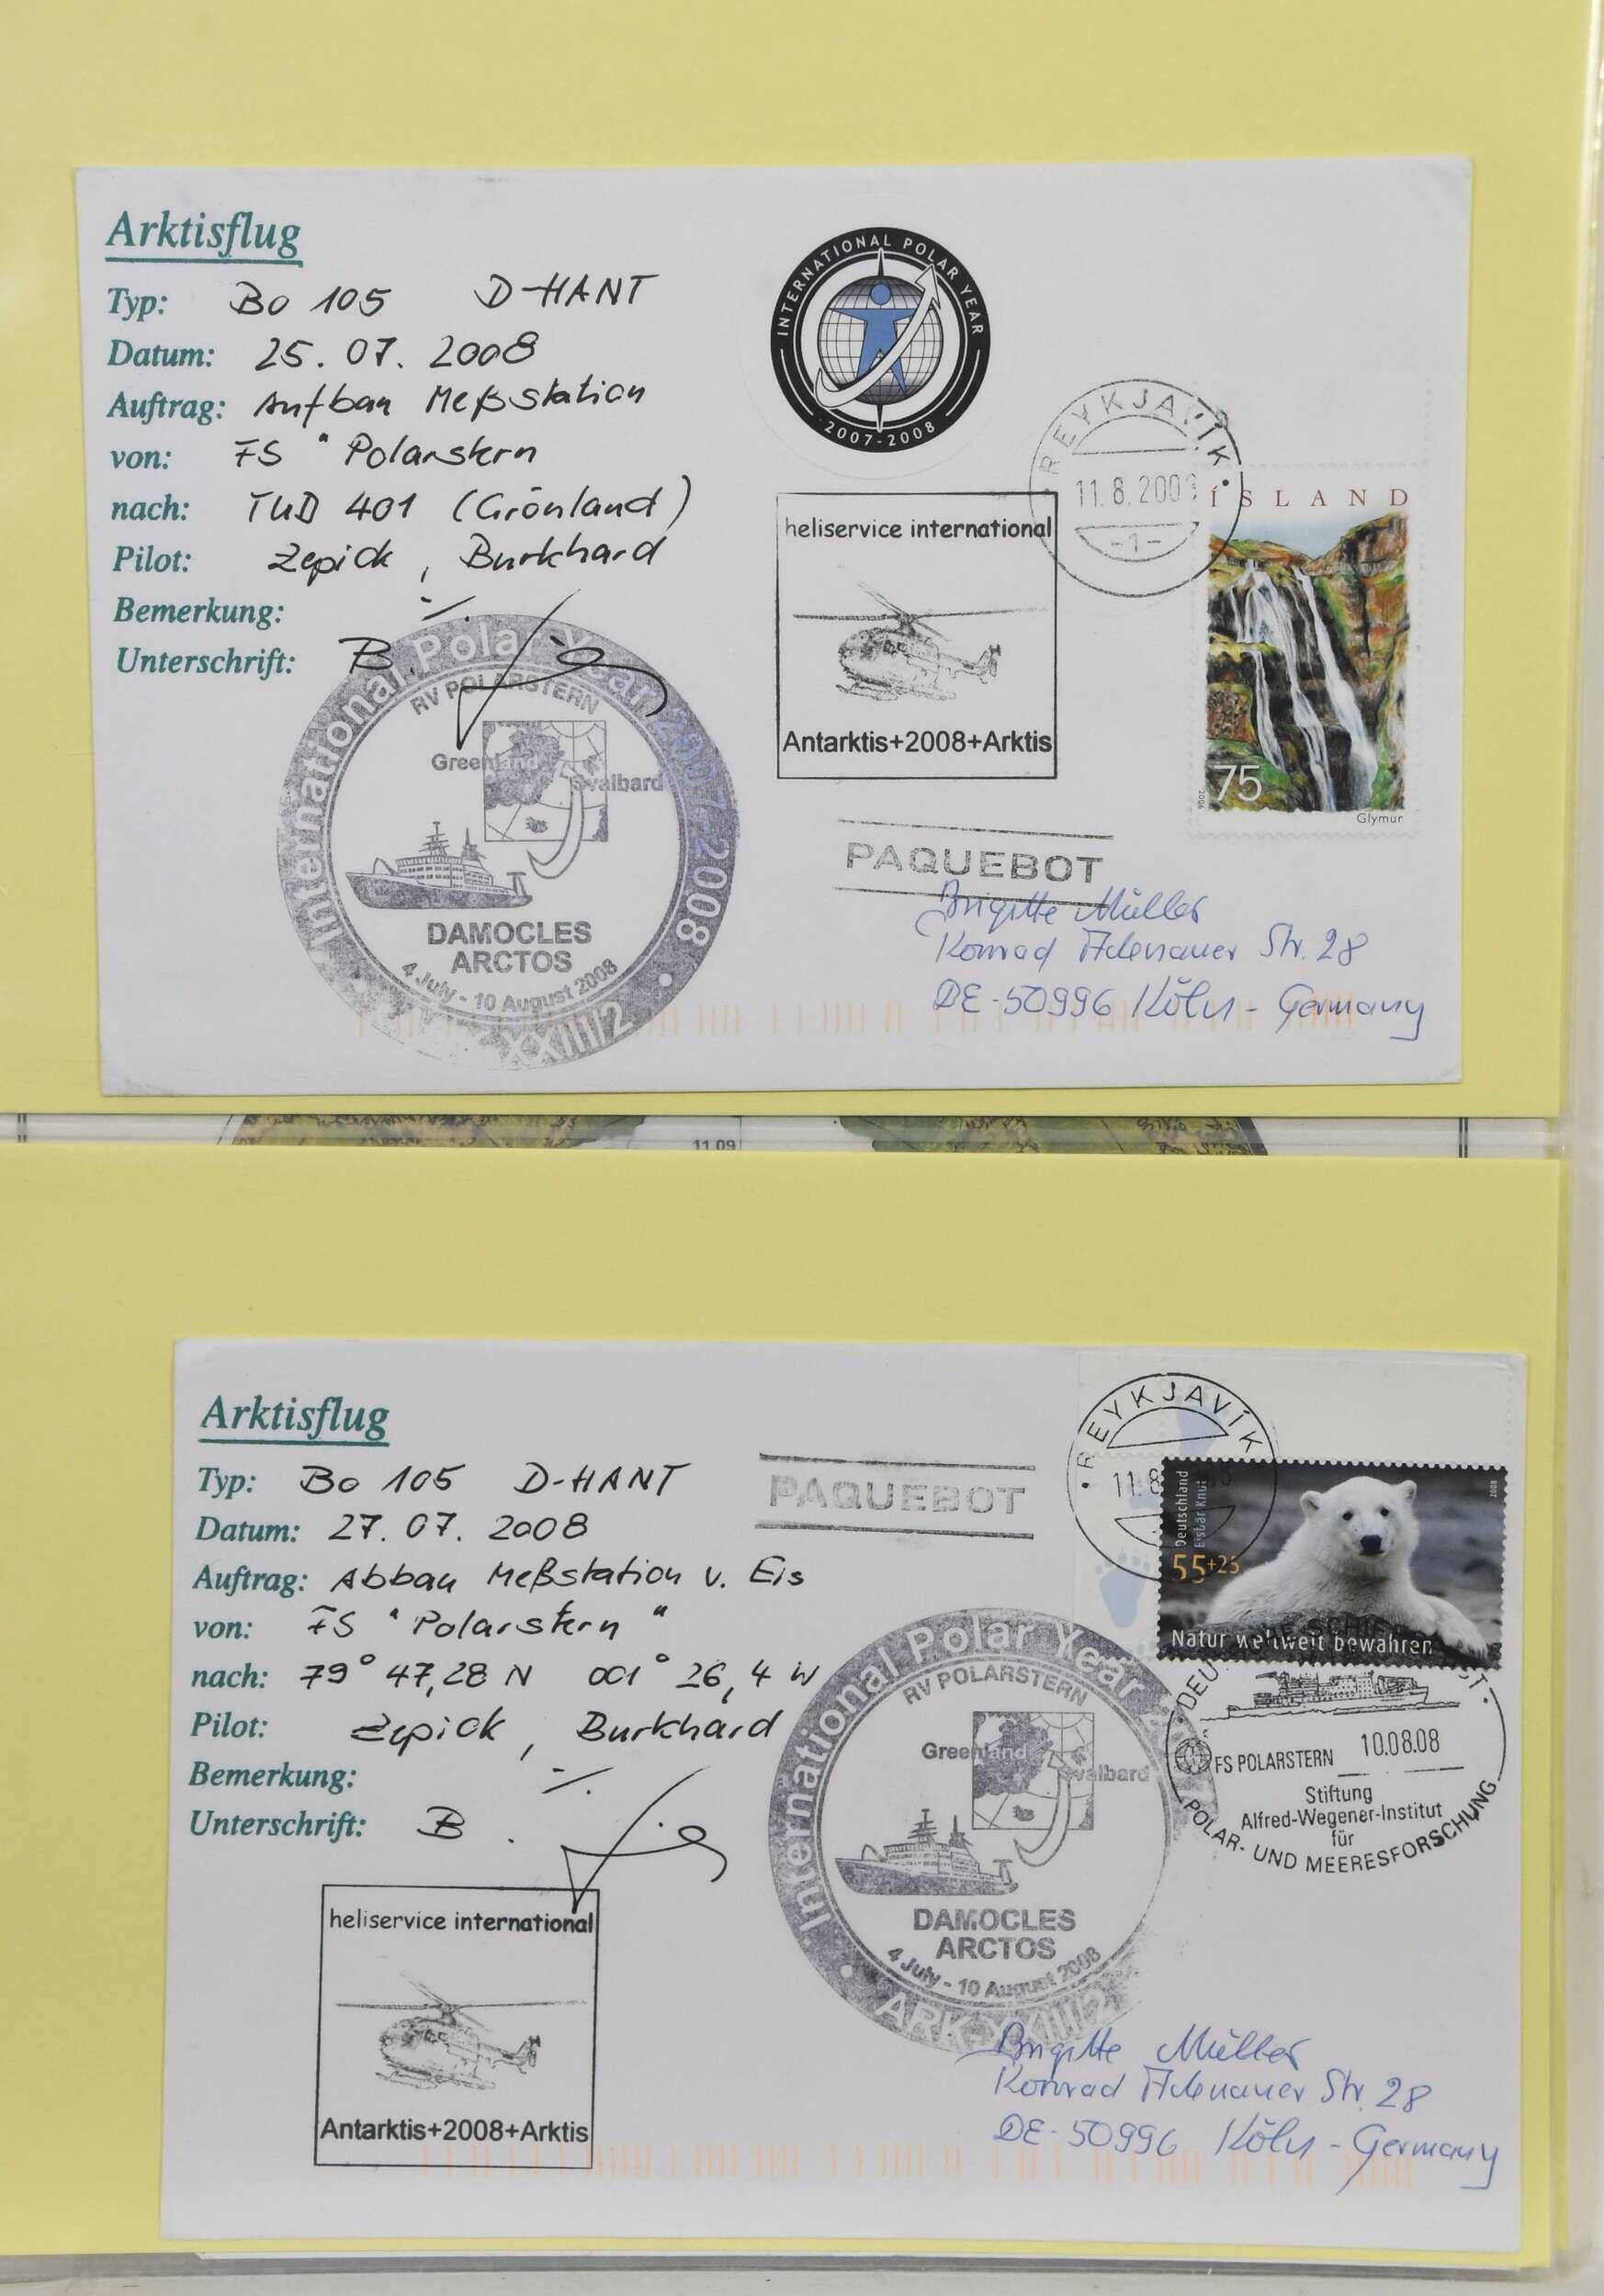 Arktisflug
Typ: Bo 105 D-HANT
Datum: 25.07.2008
Auftrag: Aufbau Meßstation
von: FS "Polarstern
nach: TUD 401 (Grönland)
Pilot: Zepick, Burkhard
Bemerkung: ./.
Unterschrift: B.
INTERNATIONAL POLAR YEAR
2007-2008
REYKJAVÍK
11.8.2008
-1-
ÍSLAND
75
2006
Glymur
heliservice international
Antarktis+2008+Arktis
PAQUEBOT
International Polar Year 2007/2008
RV POLARSTERN
Greenland
Svalbard
DAMOCLES
ARCTOS
4 July - 10 August 2008
XXIII/2
Brigitte Müller
Konrad Adenauer Str. 28
DE-50996 Köln - Germany
11.09
Arktisflug
Typ: Bo 105 D-HANT
Datum: 27.07.2008
Auftrag: Abbau Meßstation v. Eis
von: FS "Polarstern"
nach: 79° 47,28 N 001° 26,4 W
Pilot: Zepick, Burkhard
Bemerkung: ./.
Unterschrift: B.
PAQUEBOT
REYKJAVÍK
11.8
Deutschland
Eisbär Knut
2008
55+25
Natur weltweit bewahren
DEUTSCHE SCHIFFSPOST
FS POLARSTERN 10.08.08
Stiftung
Alfred-Wegener-Institut
für
POLAR- UND MEERESFORSCHUNG
International Polar Year
RV POLARSTERN
Greenland
Svalbard
DAMOCLES
ARCTOS
4 July - 10 August 2008
ARK-XXIII/2
heliservice international
Antarktis+2008+Arktis
Brigitte Müller
Konrad Adenauer Str. 28
DE-50996 Köln - Germany